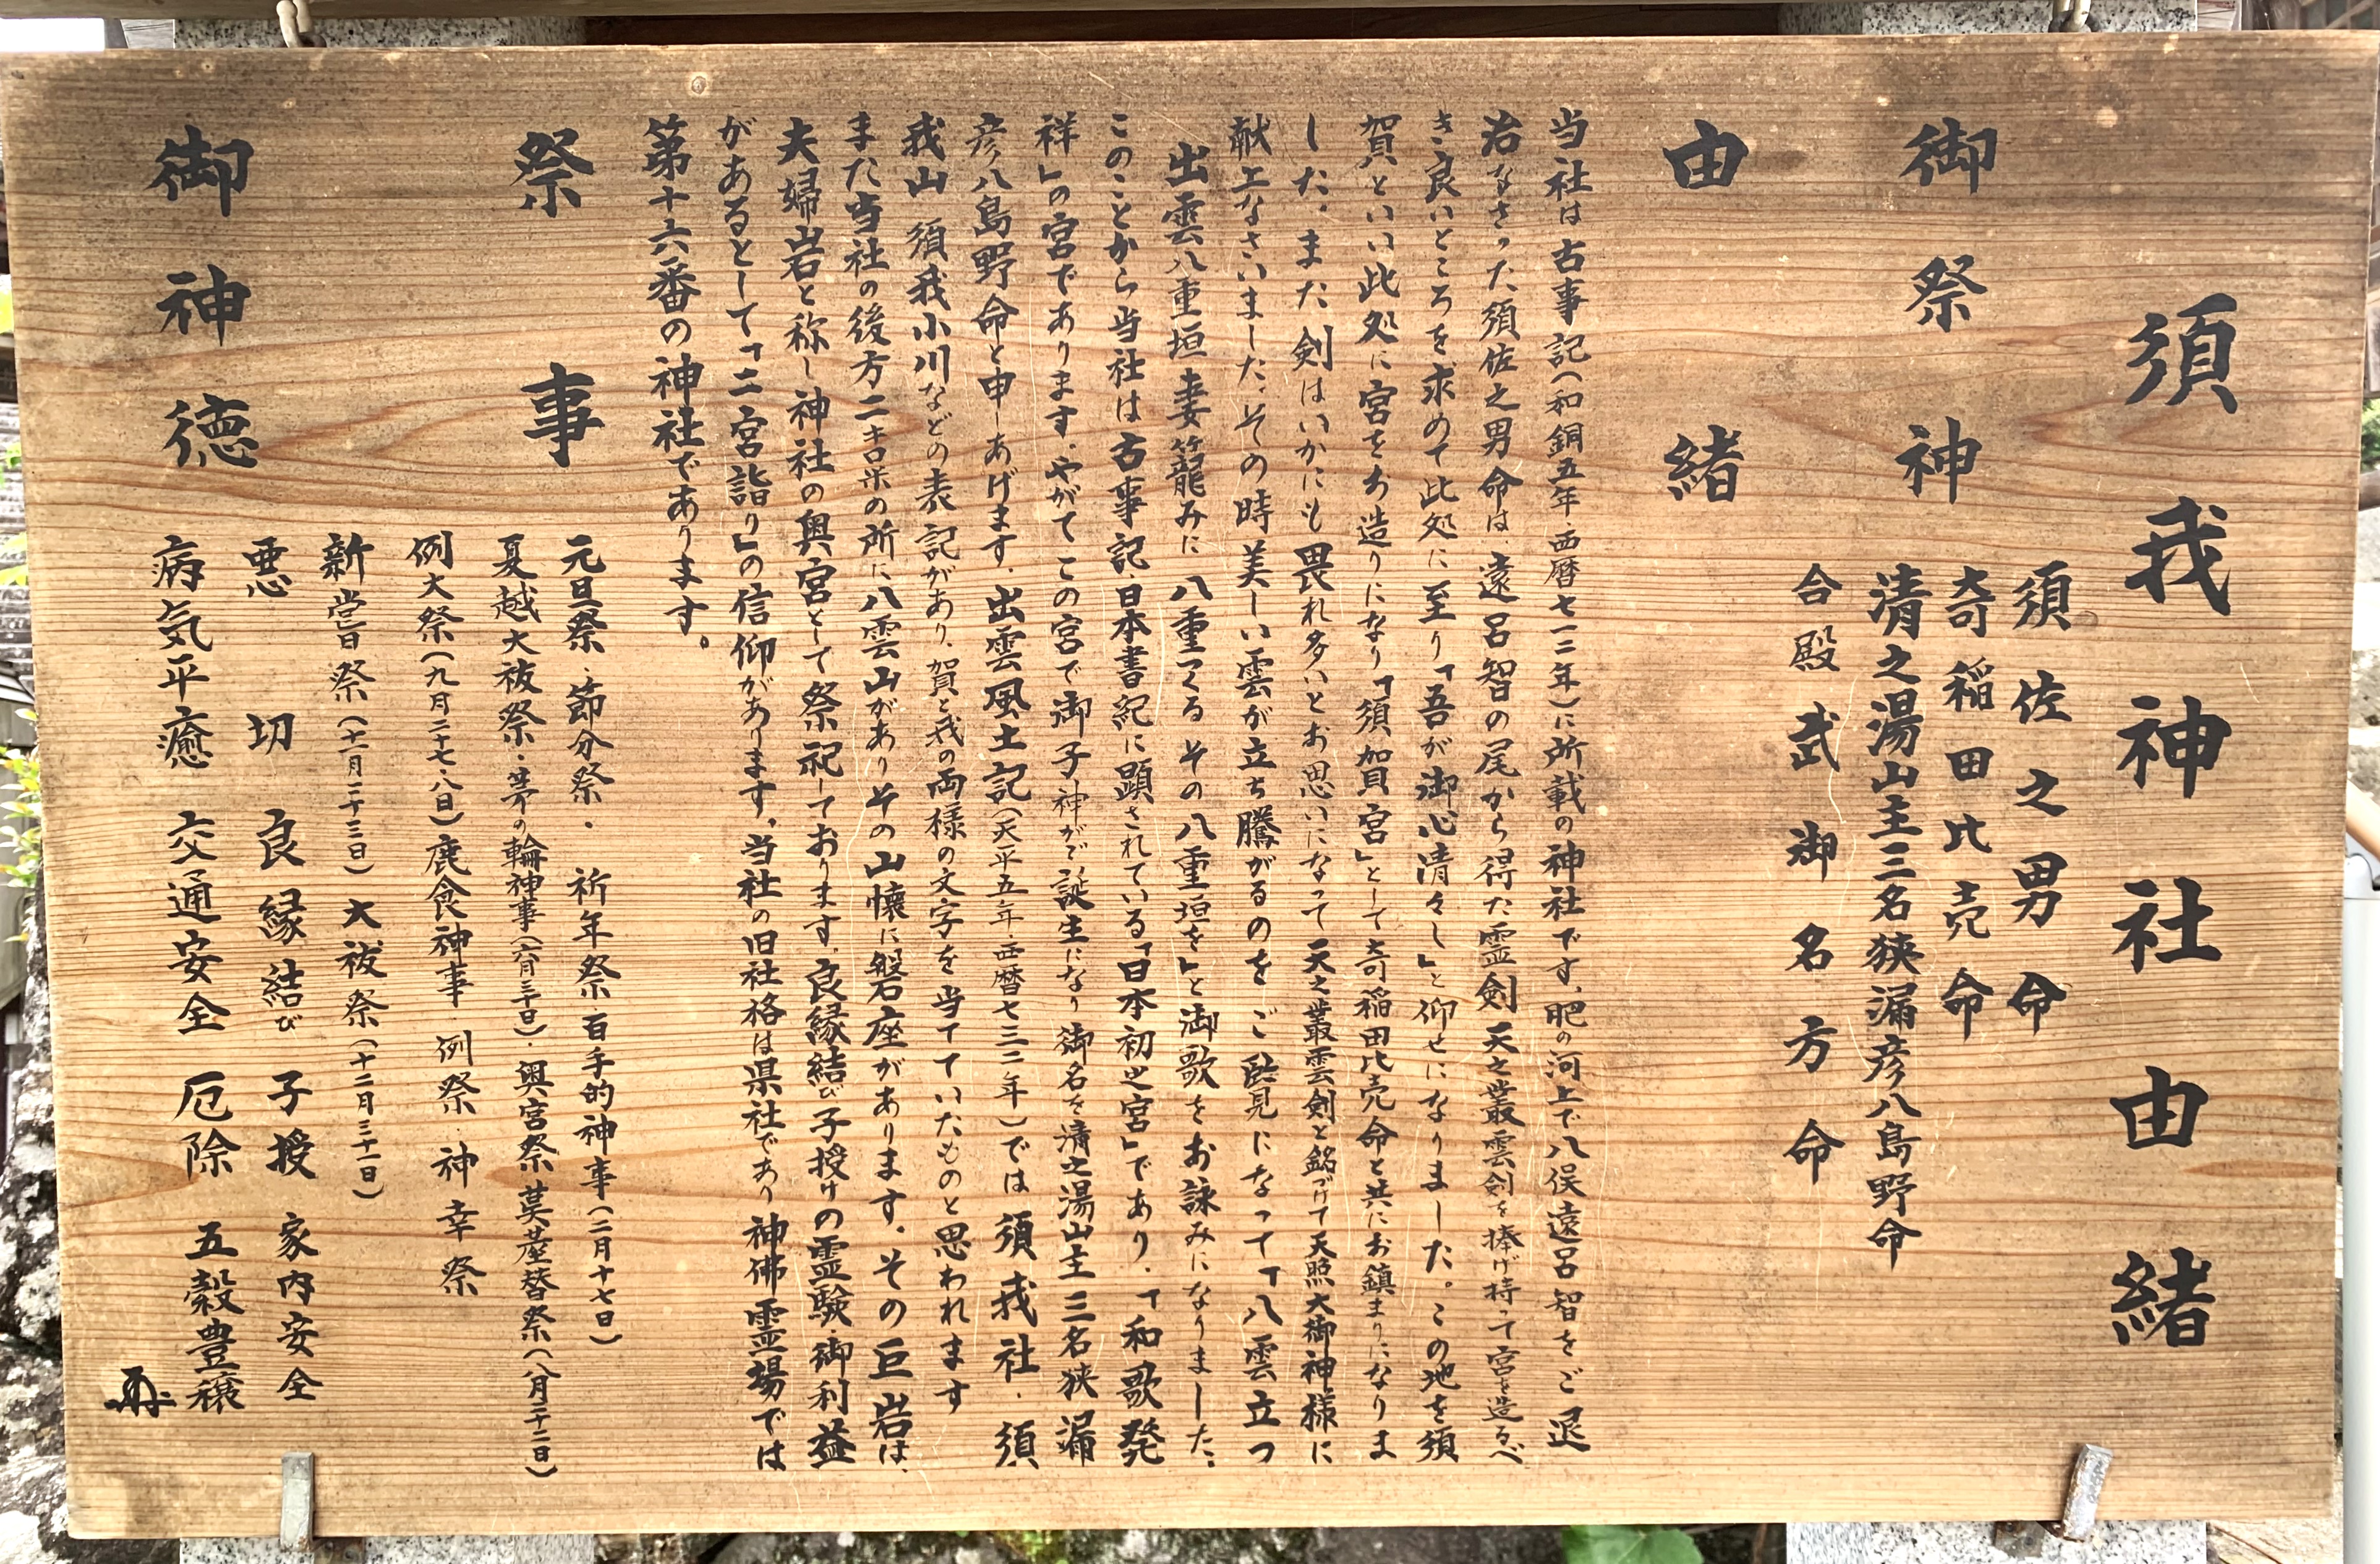 須我神社由緒
御祭神
須佐之男命
奇稲田比売命
清之湯山主三名狭漏彦八島野命
合殿 武御名方命
由緒
当社は古事記(和銅五年・西暦七一二年)に所載の神社です。肥の河上で八俣遠呂智をご退
治なさった須佐之男命は、遠呂智の尾から得た霊剣天之叢雲剣を捧げ持って宮を造るべ
き良いところを求めて此処に至り「吾が御心清々し」と仰せになりました。この地を須
賀といい此処に宮をお造りになり「須加賀宮」として奇稲田比売命と共にお鎮まりになりま
した。また剣はいかにも畏れ多いとお思いになって天之叢雲剣と銘づけて天照大御神様に
献上なさいました。その時美しい雲が立ち騰がるのをご覧になって「八雲立つ
出雲八重垣 妻籠みに 八重つくる その八重垣を」と御歌をお詠みになりました。
このことから当社は古事記、日本書紀に顕されている「日本初之宮」であり、「和歌発
祥」の宮であります。やがてこの宮で御子神がご誕生になり御名を清之湯山主三名狭漏
彦八島野命と申しあげます。出雲風土記(天平五年・西暦七三二年)では須我社・須
我山 須我小川などの表記があり、賀と我の両様の文字を当てていたものと思われます
また当社の後方二キロ米の所に八雲山がありその山懐に磐座があります。その巨岩は、
夫婦岩と称し神社の奥宮として祭祀しております。良縁結び子授けの霊験・御利益
があるとして「二宮詣り」の信仰があります。当社の旧社格は県社であり神佛霊場では
第十六番の神社であります。
祭事
元旦祭・節分祭・ 祈年祭百手的神事(二月十七日)
夏越大祓祭・茅の輪神事(六月三十日)・奥宮祭 茣蓙替祭(八月二十二日)
例大祭(九月二十七・八日)鹿食神事・例祭・神幸祭
新嘗祭(十一月二十三日)大祓祭(十二月三十一日)
御神徳
悪切 良縁結び 子授 家内安全
病気平癒 交通安全 厄除 五穀豊穣